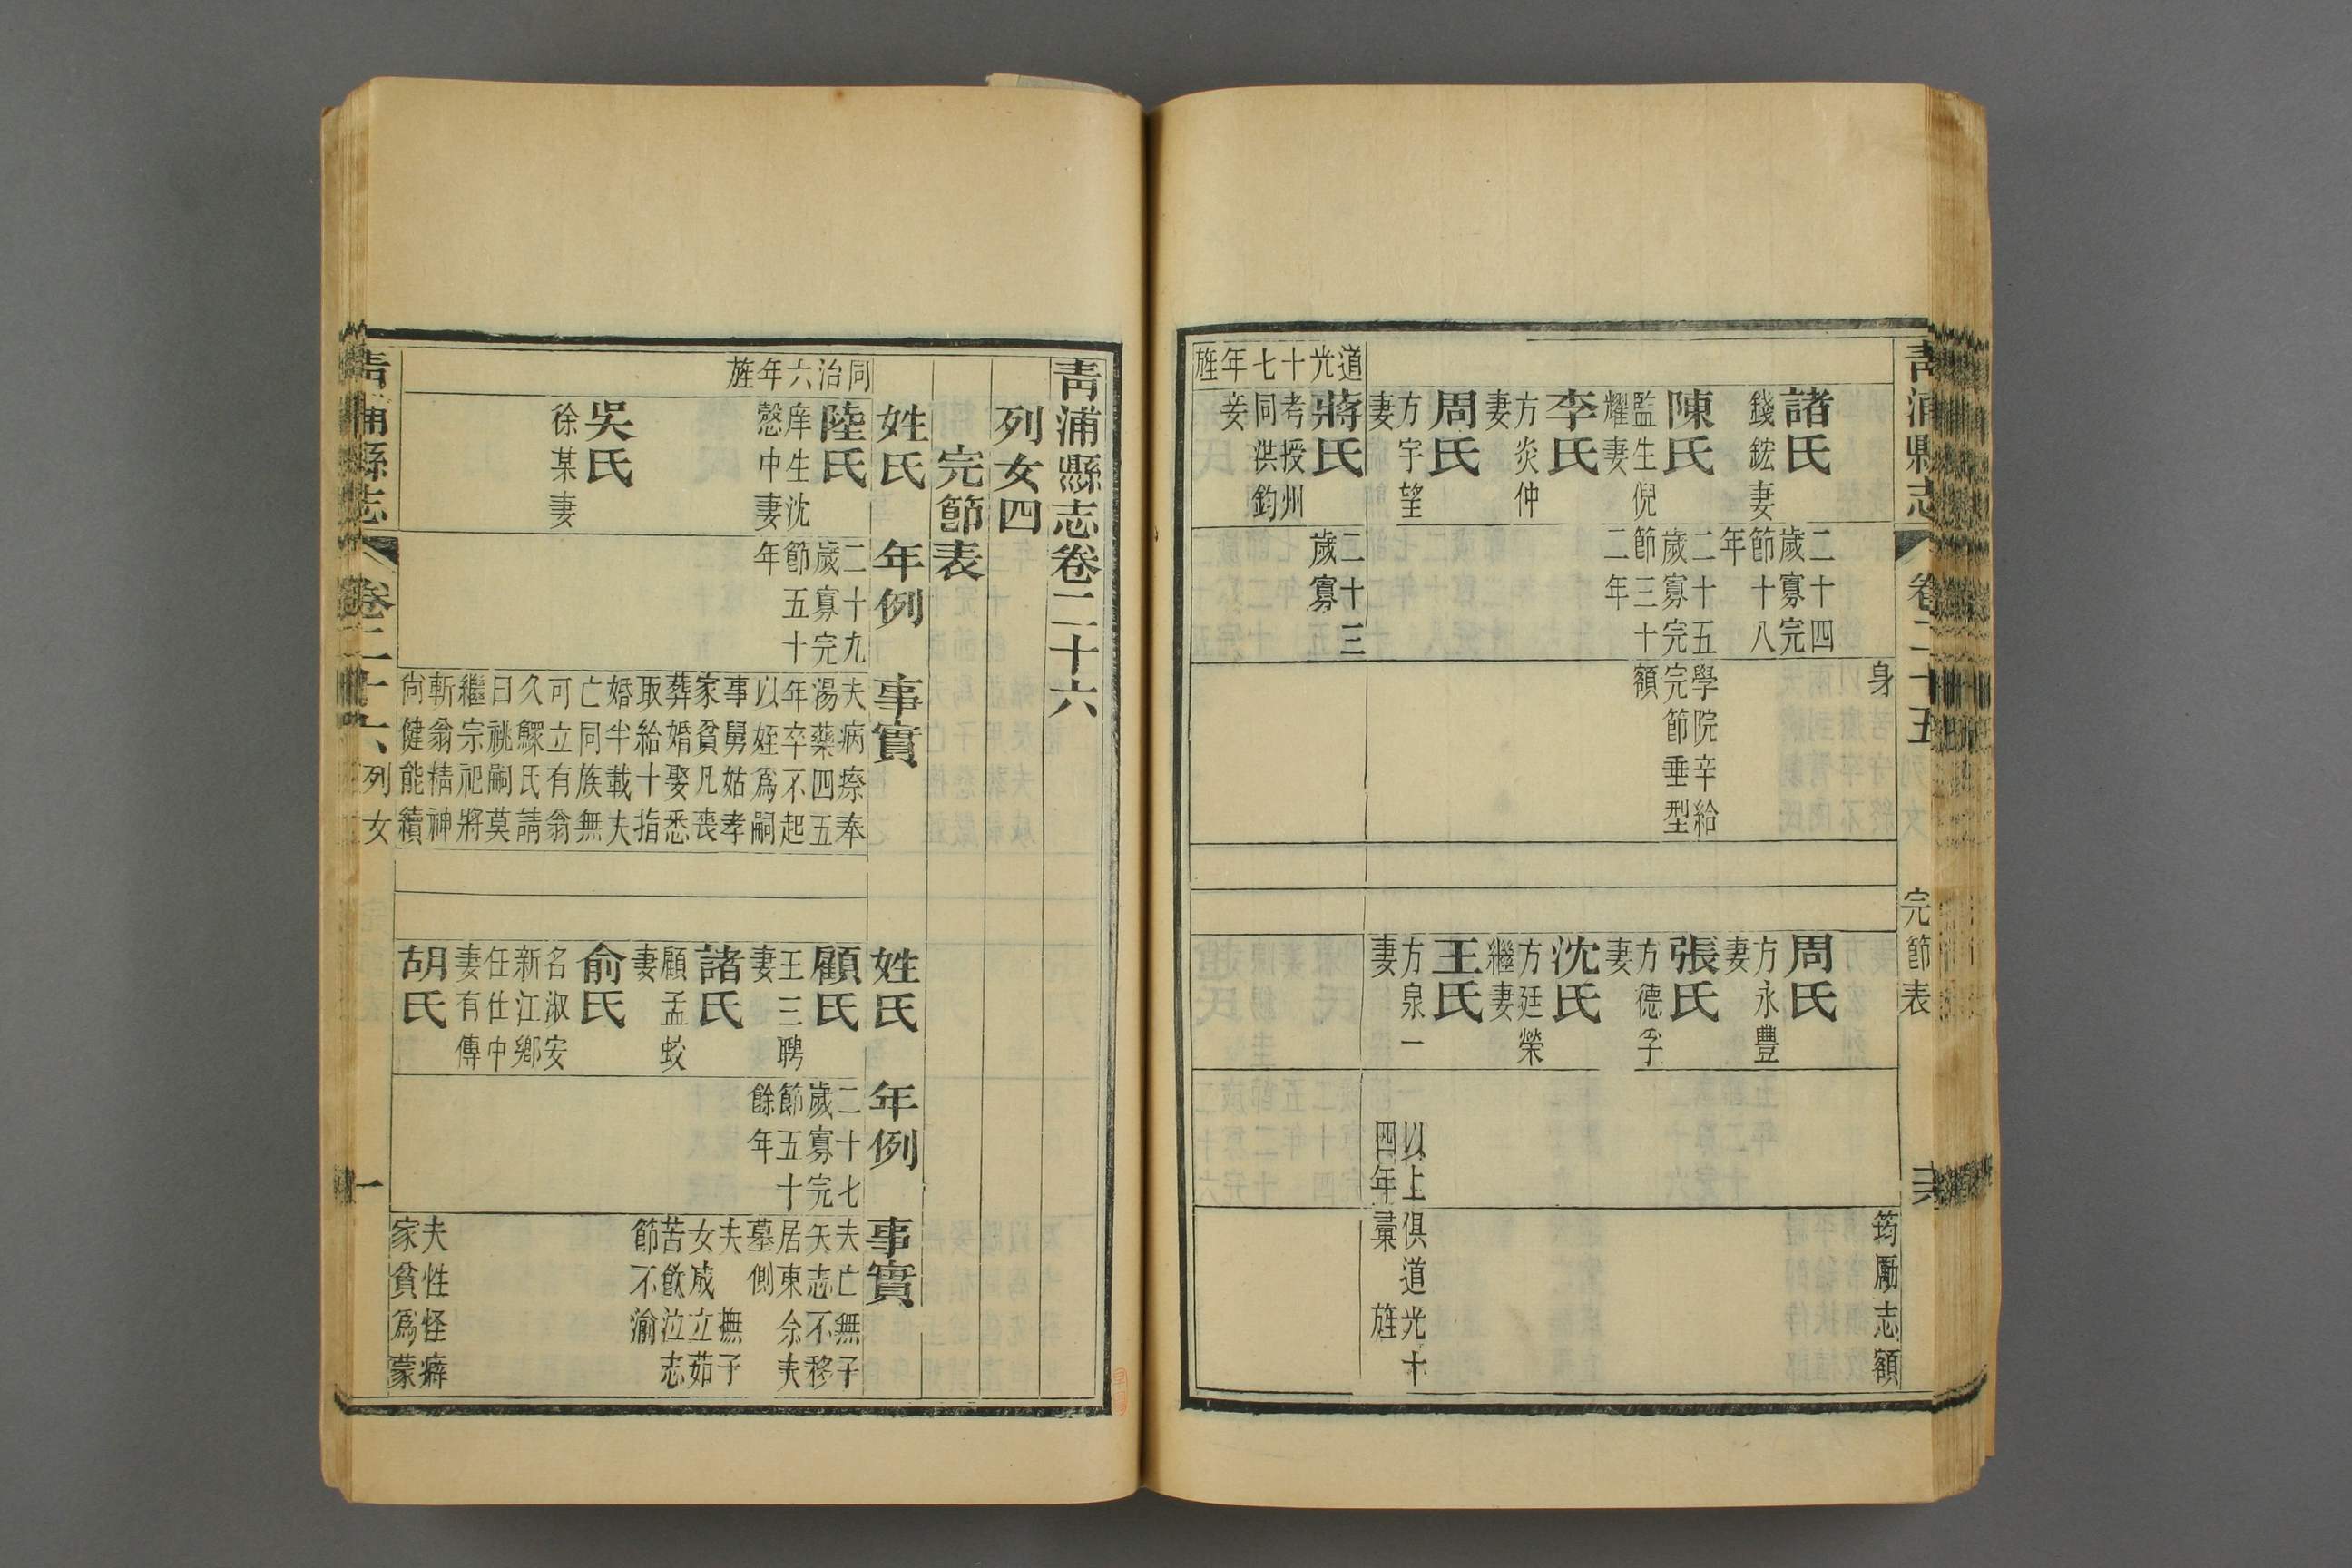 青浦縣志
卷二十五
完節表
身
諸氏
錢鋐妻
二十四
歲寡完
節十八
年
陳氏
監生倪
耀妻
二十五
歲寡完
節三十
二年
學院辛給
完節垂型
額
李氏
方炎仲
妻
周氏
方宇望
妻
道光十七年旌
蔣氏
考授州
同洪鈞
妾
二十三
歲寡
筠勵志額
周氏
方永豐
妻
張氏
方德孚
妻
沈氏
方廷榮
繼妻
王氏
方泉一
妻
以上俱道光十
四年彙旌
青浦縣志卷二十六
列女四
完節表
姓氏
年例
事實
姓氏
年例
事實
同治六年旌
陸氏
庠生沈
慤中妻
二十九
歲寡完
節五十
年
夫病瘵奉
湯藥四五
年卒不起
以姪爲嗣
事舅姑孝
家貧凡喪
葬婚娶悉
取給十指
吳氏
徐某妻
婚半載夫
亡同族無
可立有翁
久鰥氏請
曰祧嗣莫
繼宗祀將
斬翁精神
尙健能續
顧氏
王三聘
妻
二十七
歲寡完
節五十
餘年
夫亡無子
矢志不移
居東佘夫
墓側
諸氏
顧孟蛟
妻
夫 撫子
女成立茹
苦飲泣志
節不渝
俞氏
名淑安
新江鄉
任仕中
妻有傳
胡氏
夫性怪癖
家貧爲蒙
青浦縣志
卷二十六
列女
一